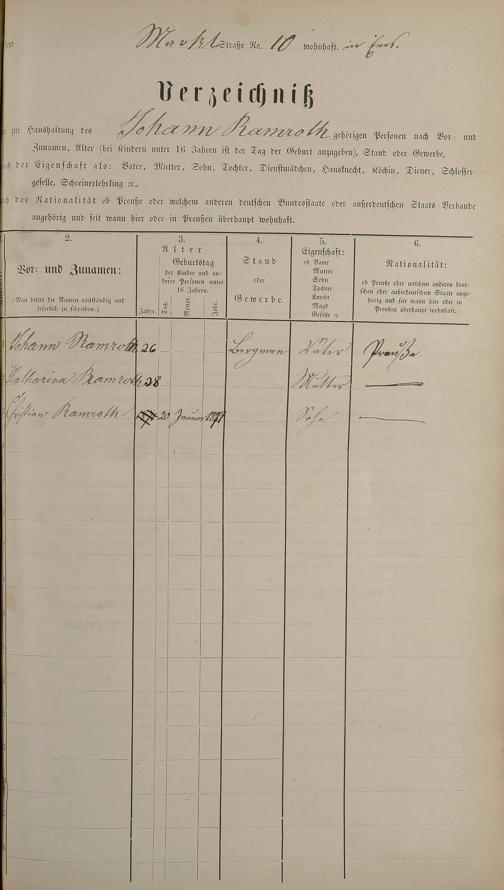 Marktstraße No. 10 wohnhaft. in Ems.
Verzeichniß
zur Haushaltung des Johann Ramroth gehörigen Personen nach Vor- und
Zunamen, Alter (bei Kindern unter 16 Jahren ist der Tag der Geburt anzugeben), Stand oder Gewerbe,
nach der Eigenschaft als: Vater, Mutter, Sohn, Tochter, Dienstmädchen, Hausknecht, Köchin, Diener, Schlosser-
geselle, Schreinerlehrling ꝛc.,
nach der Nationalität ob Preuße oder welchem anderen deutschen Bundesstaate oder außerdeutschen Staats-Verbande
angehörig und seit wann hier oder in Preußen überhaupt wohnhaft.
2.
Vor- und Zunamen:
(Man bittet die Namen vollständig und
leserlich zu schreiben.)
3.
Alter
Geburtstag
der Kinder und an-
derer Personen unter
16 Jahren.
Jahre. Tag. Monat. Jahr.
4.
Stand
oder
Gewerbe.
5.
Eigenschaft:
ob Vater
Mutter
Sohn
Tochter
Knecht
Magd
Geselle ꝛc.
6.
Nationalität:
ob Preuße oder welchem anderen deut-
schen oder außerdeutschen Staate ange-
hörig und seit wann hier oder in
Preußen überhaupt wohnhaft.
Johann Ramroth 26 Bergman Vater Preuße
Katharina Ramroth 28 Mutter —
Christian Ramroth 20 Januar 1871 Sohn —